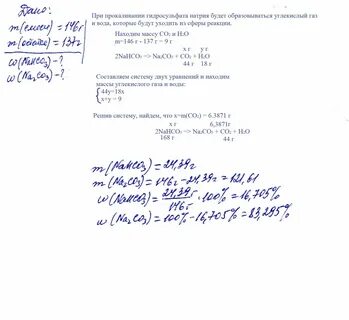 Дано:
m(смеси)=146г
m(остатка)=137г
w(NaHCO3)-?
w(Na2CO3)-?
При прокаливании гидросульфата натрия будет образовываться углекислый газ
и вода, которые будут уходить из сферы реакции.
Находим массу CO2 и H2O
m=146 г - 137 г = 9 г
x г y г
2NaHCO3 --> Na2CO3 + CO2 + H2O
44 г 18 г
Составляем систему двух уравнений и находим
массы углекислого газа и воды:
44y=18x
x+y = 9
Решив систему, найдем, что x=m(CO2) = 6.3871 г
x г 6,3871г
2NaHCO3 --> Na2CO3 + CO2 + H2O
168 г 44 г
m(NaHCO3)=24,39г
m(Na2CO3)=146г-24,39г=121,61
w(NaHCO3)=24,39г/146г·100%=16,705%
w(Na2CO3)=100%-16,705%=83,295%